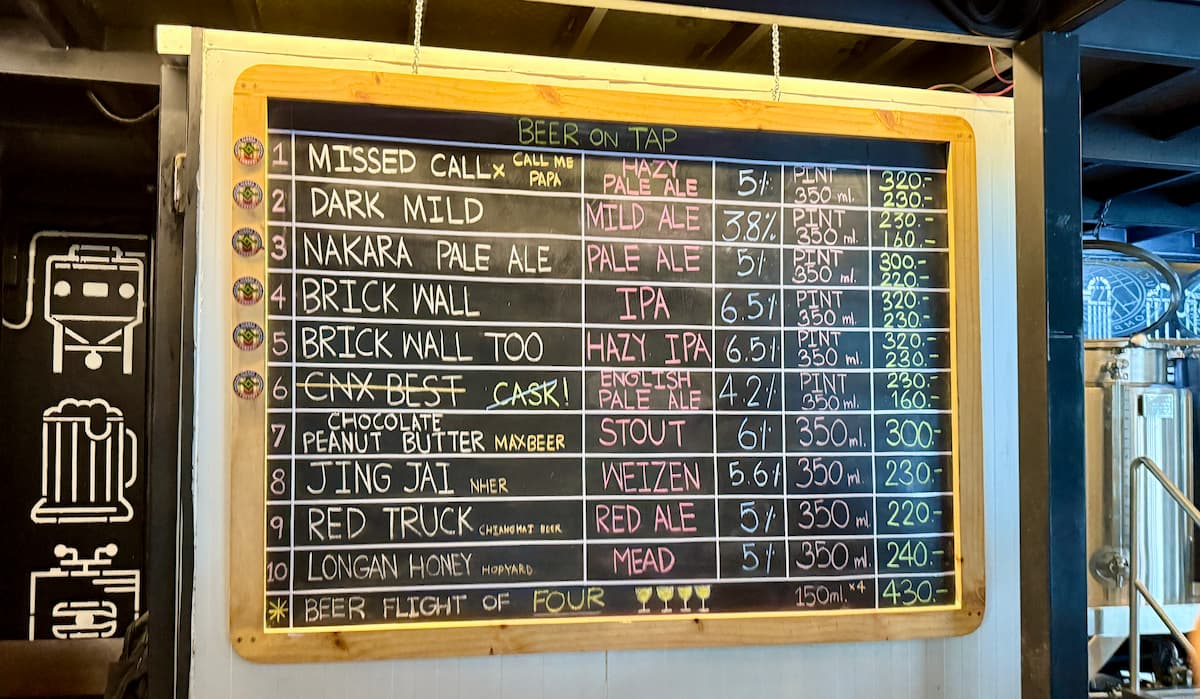 BEER ON TAP
1 MISSED CALL x CALL ME PAPA HAZY PALE ALE 5% PINT 320.- 350 ml. 230.-
2 DARK MILD MILD ALE 3.8% PINT 230.- 350 ml. 160.-
3 NAKARA PALE ALE PALE ALE 5% PINT 300.- 350 ml. 220.-
4 BRICK WALL IPA 6.5% PINT 320.- 350 ml. 230.-
5 BRICK WALL TOO HAZY IPA 6.5% PINT 320.- 350 ml. 230.-
6 CNX BEST CASK! ENGLISH PALE ALE 4.2% PINT 230.- 350 ml. 160.-
7 CHOCOLATE PEANUT BUTTER MAXBEER STOUT 6% 350 ml. 300.-
8 JING JAI NHER WEIZEN 5.6% 350 ml. 230.-
9 RED TRUCK CHIANGMAI BEER RED ALE 5% 350 ml. 220.-
10 LONGAN HONEY HOPYARD MEAD 5% 350 ml. 240.-
* BEER FLIGHT OF FOUR 150ml. x4 430.-